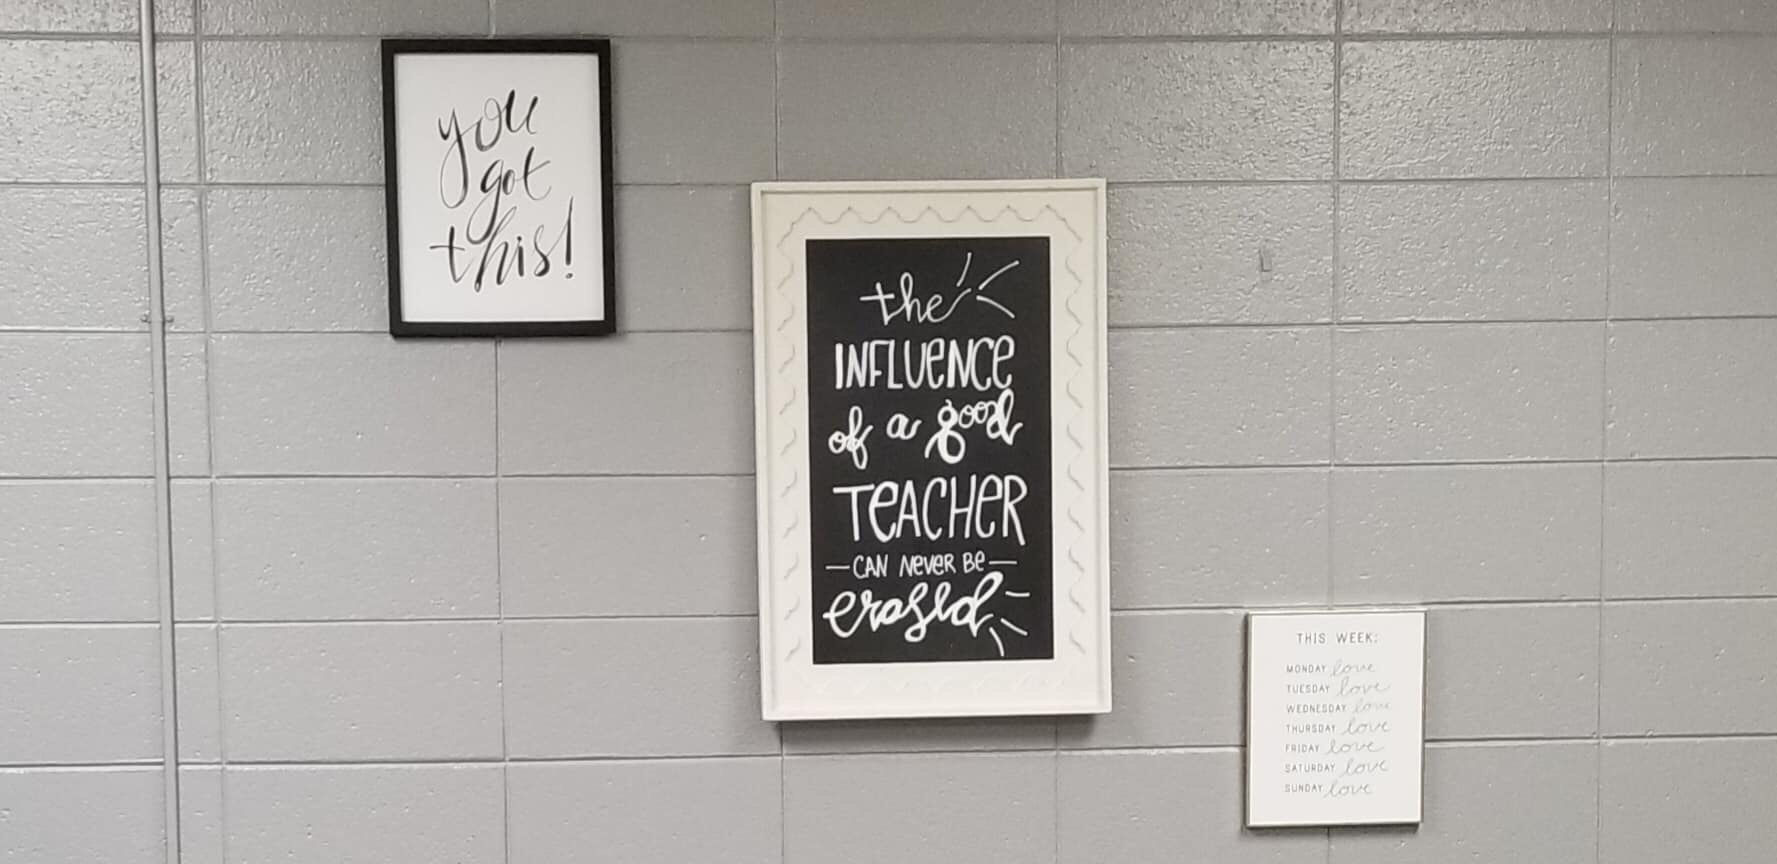 you
got
this!
the
INFLUeNCe
of a good
TeACHeR
CAN NeveR Be
erased
THIS WEEK:
MONDAY love
TUESDAY love
WEDNESDAY love
THURSDAY love
FRIDAY love
SATURDAY love
SUNDAY love